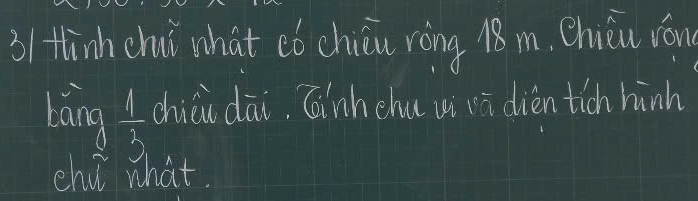 3/ Hình chữ nhật có chiều rộng 18 m. Chiều rộng
bằng 1/3 chiều dài. Tính chu vi và diện tích hình
chữ nhật.